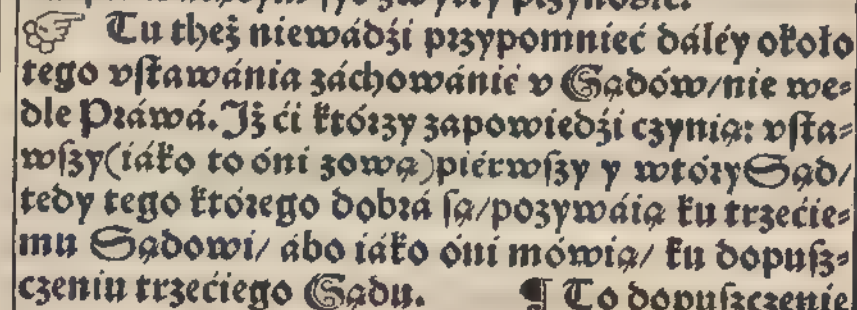 ☞ Tu theż niewádźi przypomnieć dáléy około
tego vſtawánia záchowánié v Sądów/nie we⸗
dle Práwá. Iż ći którzy zapowiedźi czynią: vſta⸗
wſzy(iáko to óni zową)piérwſzy y wtóry Sąd/
tedy tego którego dobrá ſą/pozywáią ku trzećie⸗
mu Sądowi/ ábo iáko óni mówią/ ku dopuſz⸗
czeniu trzećiego Sądu. ¶ To dopuſzczenie